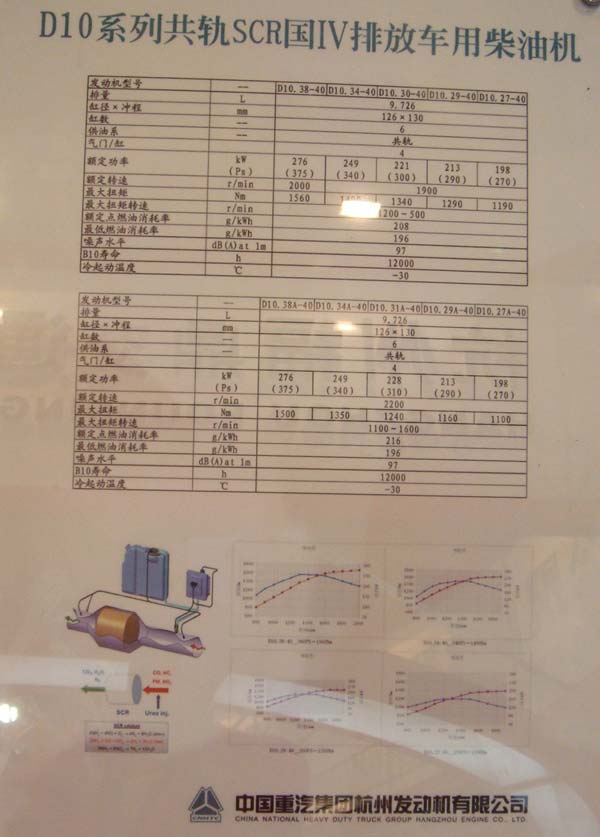 D10系列共轨SCR国IV排放车用柴油机
发动机型号 — D10.38-40 D10.34-40 D10.30-40 D10.29-40 D10.27-40
排量 L 9.726
缸径×冲程 mm 126×130
缸数 -- 6
供油系 -- 共轨
气门/缸 4
额定功率 kW (Ps) 276 (375) 249 (340) 221 (300) 213 (290) 198 (270)
额定转速 r/min 2000 1900
最大扭矩 Nm 1560 1340 1290 1190
最大扭矩转速 r/min 1200-500
额定点燃油消耗率 g/kWh 208
最低燃油消耗率 g/kWh 196
噪声水平 dB(A)at 1m 97
B10寿命 h 12000
冷起动温度 ℃ -30
发动机型号 — D10.38A-40 D10.34A-40 D10.31A-40 D10.29A-40 D10.27A-40
排量 L 9.726
缸径×冲程 mm 126×130
缸数 — 6
供油系 — 共轨
气门/缸 4
额定功率 kW (Ps) 276 (375) 249 (340) 228 (310) 213 (290) 198 (270)
额定转速 r/min 2200
最大扭矩 Nm 1500 1350 1240 1160 1100
最大扭矩转速 r/min 1100-1600
额定点燃油消耗率 g/kWh 216
最低燃油消耗率 g/kWh 196
噪声水平 dB(A)at 1m 97
B10寿命 h 12000
冷起动温度 ℃ -30
SCR
Urea inj.
CNHTC
中国重汽集团杭州发动机有限公司
CHINA NATIONAL HEAVY DUTY TRUCK GROUP HANGZHOU ENGINE CO., LTD.